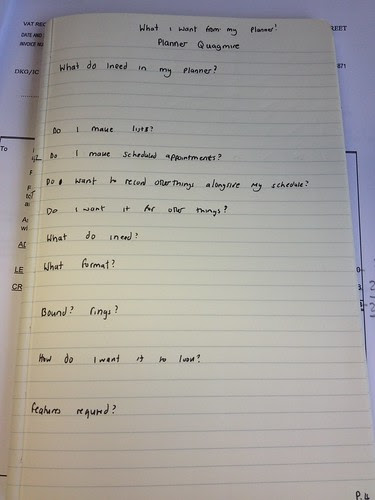 What I want from my planner!
Planner Quagmire
What do I need in my planner?
Do I make lists?
Do I make scheduled appointments?
Do I want to record other things alongside my schedule?
Do I want it for other things?
What do I need?
What format?
Bound? rings?
How do I want it to look?
features required?
P.4
VAT REG
DATE AND
INVOICE
DKO/IC
REET
871
To
LE
CR